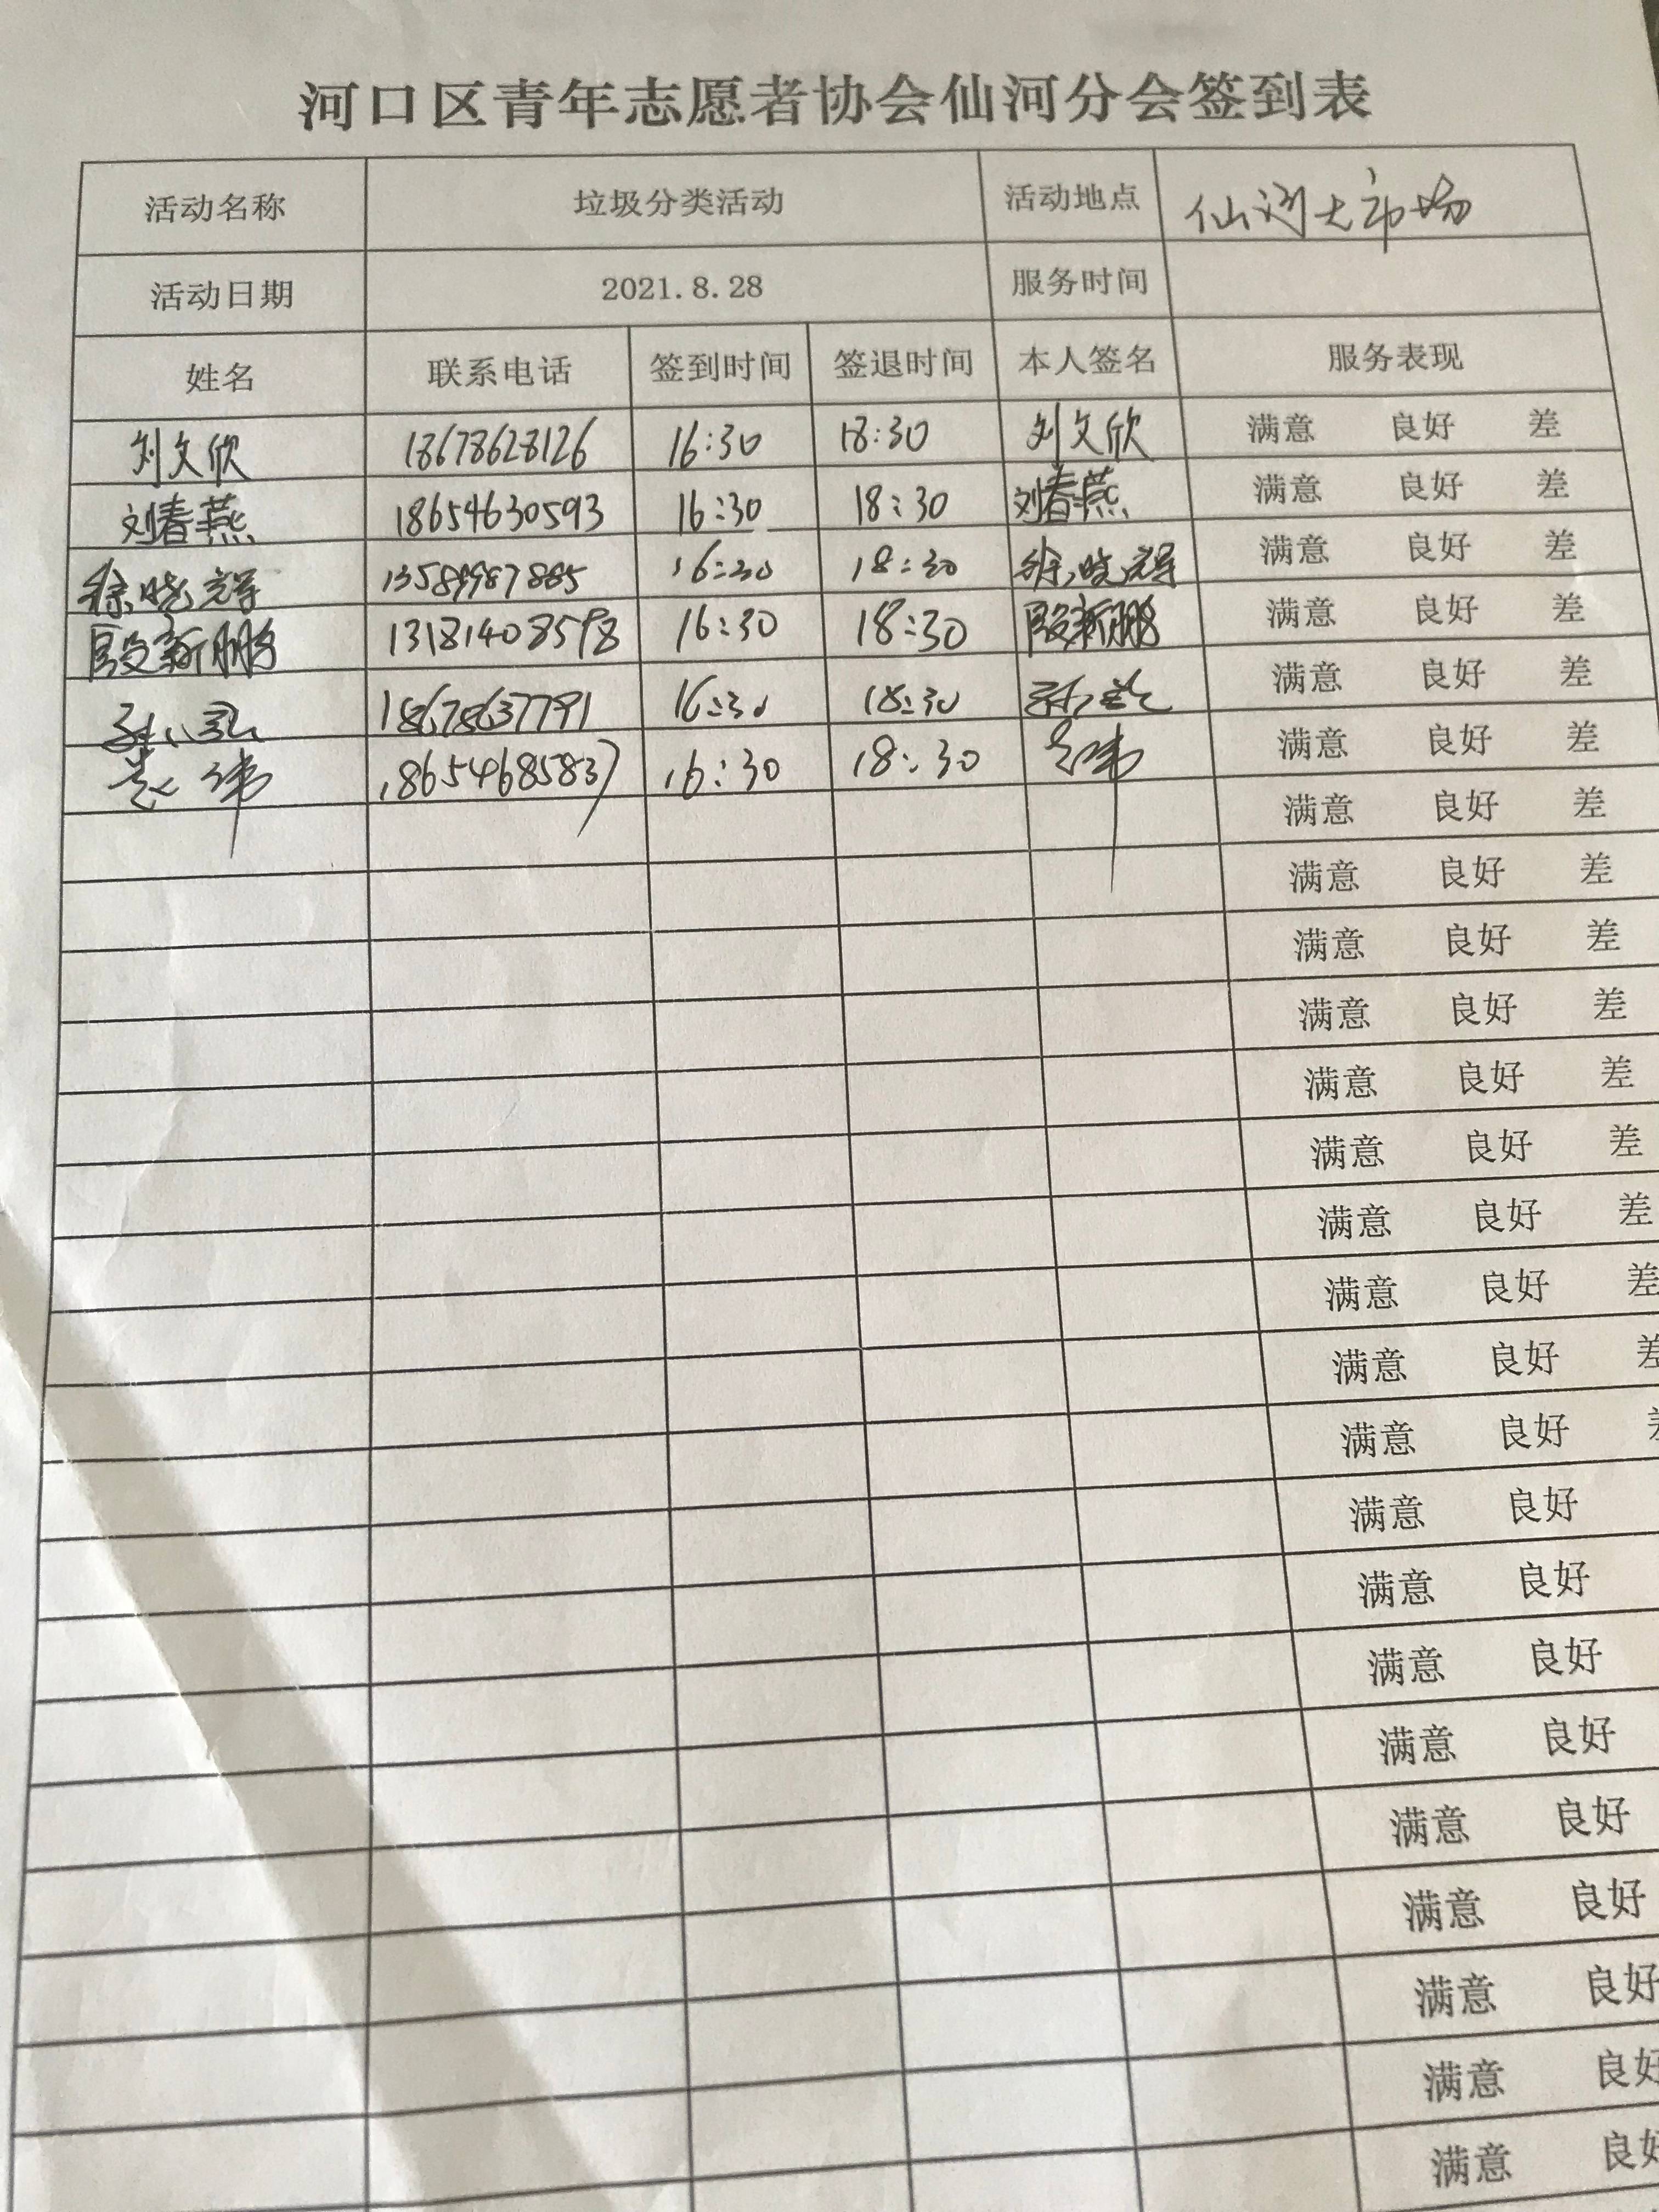 河口区青年志愿者协会仙河分会签到表
活动名称 垃圾分类活动 活动地点 仙河大市场
活动日期 2021.8.28 服务时间
姓名 联系电话 签到时间 签退时间 本人签名 服务表现
刘文欣 18678628126 16:30 18:30 刘文欣 满意 良好 差
刘春燕 18654630593 16:30 18:30 刘春燕 满意 良好 差
徐晓辉 13589987885 16:30 18:30 徐晓辉 满意 良好 差
殷新鹏 13181408598 16:30 18:30 殷新鹏 满意 良好 差
18678637791 16:30 18:30 满意 良好 差
18654685837 16:30 18:30 满意 良好 差
满意 良好 差
满意 良好 差
满意 良好 差
满意 良好 差
满意 良好 差
满意 良好 差
满意 良好 差
满意 良好 差
满意 良好 差
满意 良好
满意 良好
满意 良好
满意 良好
满意 良好
满意 良好
满意 良好
满意 良好
满意 良好
满意 良好